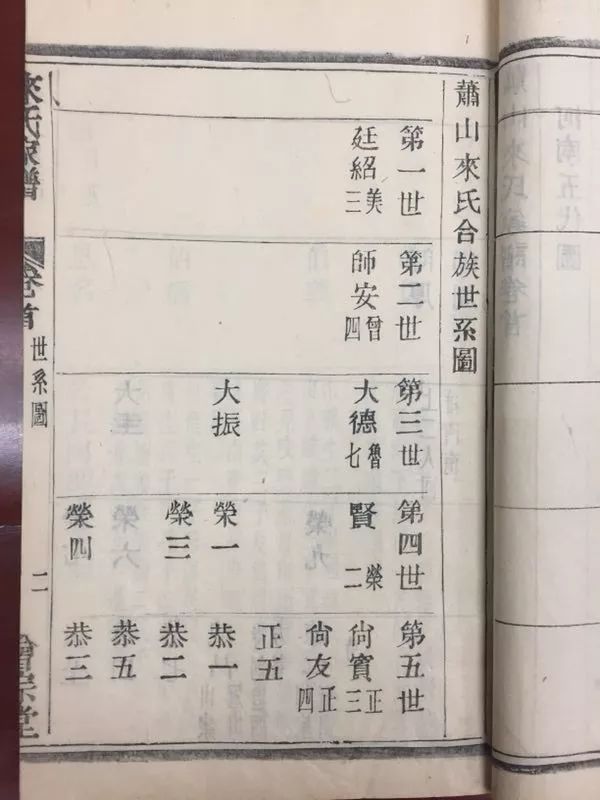 河南五代圖
蕭山來氏合族世系圖
第一世
廷紹 美三
第二世
師安 曾四
第三世
大德 魯七
大振
第四世
賢 榮二
榮一
榮三
榮四
第五世
尙賓 正三
尙友 正四
正五
恭一
恭二
恭五
恭三
來氏家譜
卷首
世系圖
二
會宗堂